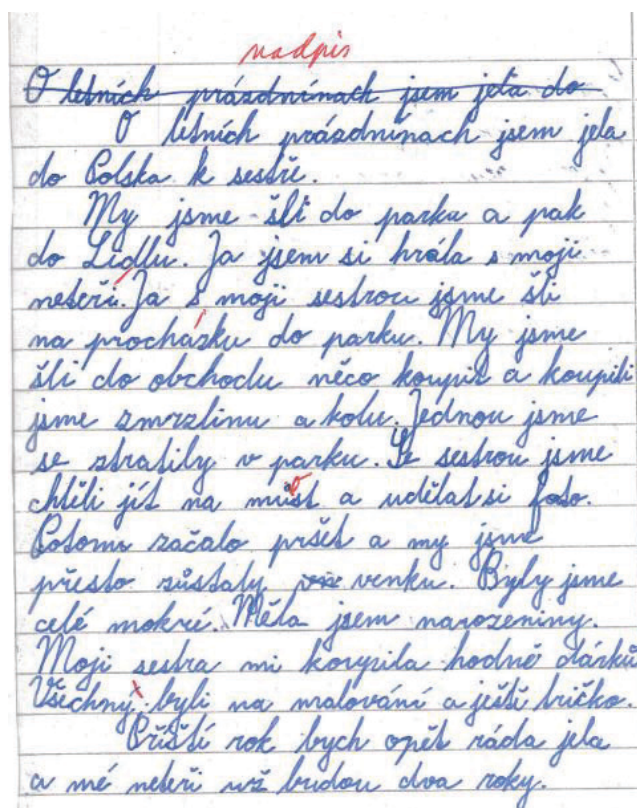 nadpis
O letních prázdninach jsem jela do
O letních prázdninach jsem jela
do Polska k sestře.
My jsme šli do parku a pak
do Lidlu. Ja jsem si hrála s moji
neteří. Ja s moji sestrou jsme šli
na procházku do parku. My jsme
šli do obchodu něco koupit a koupili
jsme zmrzlinu a kolu. Jednou jsme
se ztratily v parku. Se sestrou jsme
chtěli jít na most a udělat si foto.
Potom začalo pršet a my jsme
přesto zůstaly venku. Byly jsme
celé mokré. Měla jsem narozeniny.
Moji sestra mi koupila hodně dárků
Všechny byli na malování a ještě tričko.
Příští rok bych opět ráda jela
a mé neteři už budou dva roky.